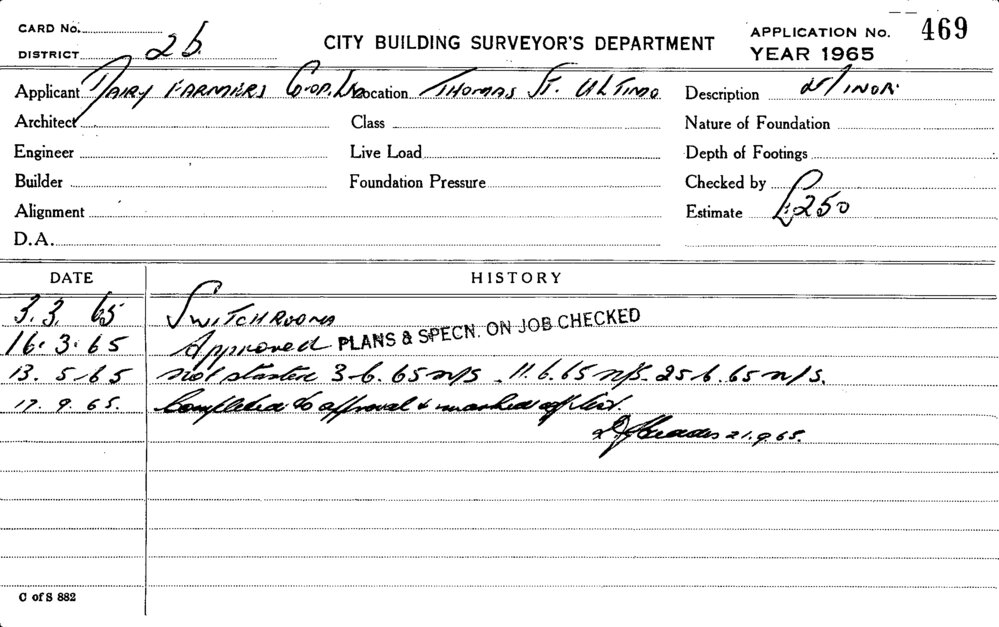 CARD No.
DISTRICT 2b.
CITY BUILDING SURVEYOR'S DEPARTMENT
APPLICATION No. 469
YEAR 1965
Applicant DAIRY FARMERS CO-OP. LTD Location THOMAS ST. ULTIMO Description MINOR
Architect Class Nature of Foundation
Engineer Live Load Depth of Footings
Builder Foundation Pressure Checked by
Alignment Estimate £250
D.A.
DATE HISTORY
3.3.65 SWITCHROOMS
16.3.65 Approved PLANS & SPECN. ON JOB CHECKED
13.5.65 not started 3-6.65 n/s. 11.6.65 n/s. 25.6.65 n/s.
17.9.65. Completed to approval & marked off list.
21.9.65.
C of S 882